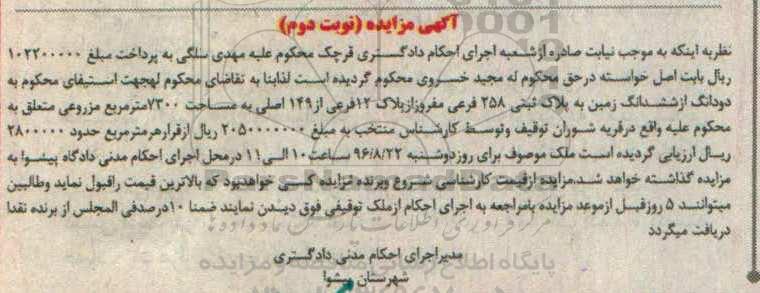 آگهی مزایده (نوبت دوم)
نظربه اینکه به موجب نیابت صادره ازشعبه اجرای احکام دادگستری قرچک محکوم علیه مهدی سلگی به پرداخت مبلغ ۱۰۲۲۰۰۰۰۰
ریال بابت اصل خواسته درحق محکوم له مجید خسروی محکوم گردیده است لذابنا به تقاضای محکوم لهجهت استیفای محکوم به
دودانگ ازششدانگ زمین به پلاک ثبتی ۲۵۸ فرعی مفروزازپلاک ۱۲فرعی از۱۴۹ اصلی به مساحت ۷۳۰۰مترمربع مزروعی متعلق به
محکوم علیه واقع درقریه شوران توقیف وتوسط کارشناس منتخب به مبلغ ۲۰۵۰۰۰۰۰۰۰ ریال ازقرارهرمترمربع حدود ۲۸۰۰۰۰۰
ریال ارزیابی گردیده است ملک موصوف برای روزدوشنبه ۹۶/۸/۲۲ ساعت۱۰ الی ۱۱ درمحل اجرای احکام مدنی دادگاه پیشوا به
مزایده گذاشته خواهد شد.مزایده ازقیمت کارشناسی شروع وبرنده مزایده کسی خواهدبود که بالاترین قیمت راقبول نماید وطالبین
میتوانند ۵ روزقبل ازموعد مزایده بامراجعه به اجرای احکام ازملک توقیفی فوق دیدن نمایند ضمنا ۱۰درصدفی المجلس از برنده نقدا
دریافت میگردد
مدیراجرای احکام مدنی دادگستری
شهرستان پیشوا